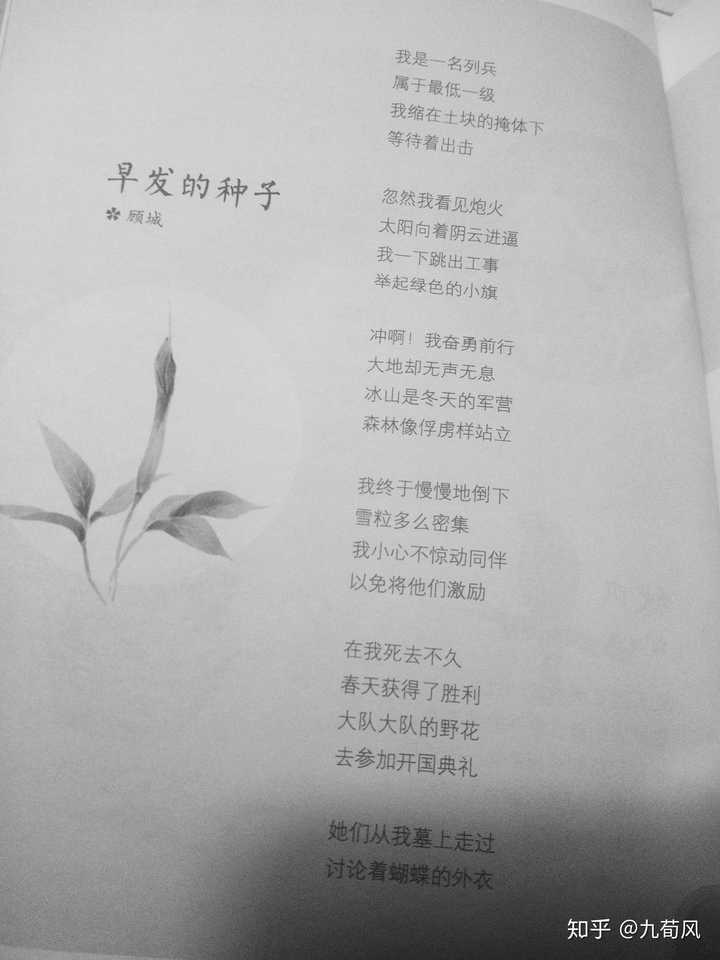 早发的种子
顾城
我是一名列兵
属于最低一级
我缩在土块的掩体下
等待着出击
忽然我看见炮火
太阳向着阴云进逼
我一下跳出工事
举起绿色的小旗
冲啊！我奋勇前行
大地却无声无息
冰山是冬天的军营
森林像俘虏样站立
我终于慢慢地倒下
雪粒多么密集
我小心不惊动同伴
以免将他们激励
在我死去不久
春天获得了胜利
大队大队的野花
去参加开国典礼
她们从我墓上走过
讨论着蝴蝶的外衣
知乎 @九荀风